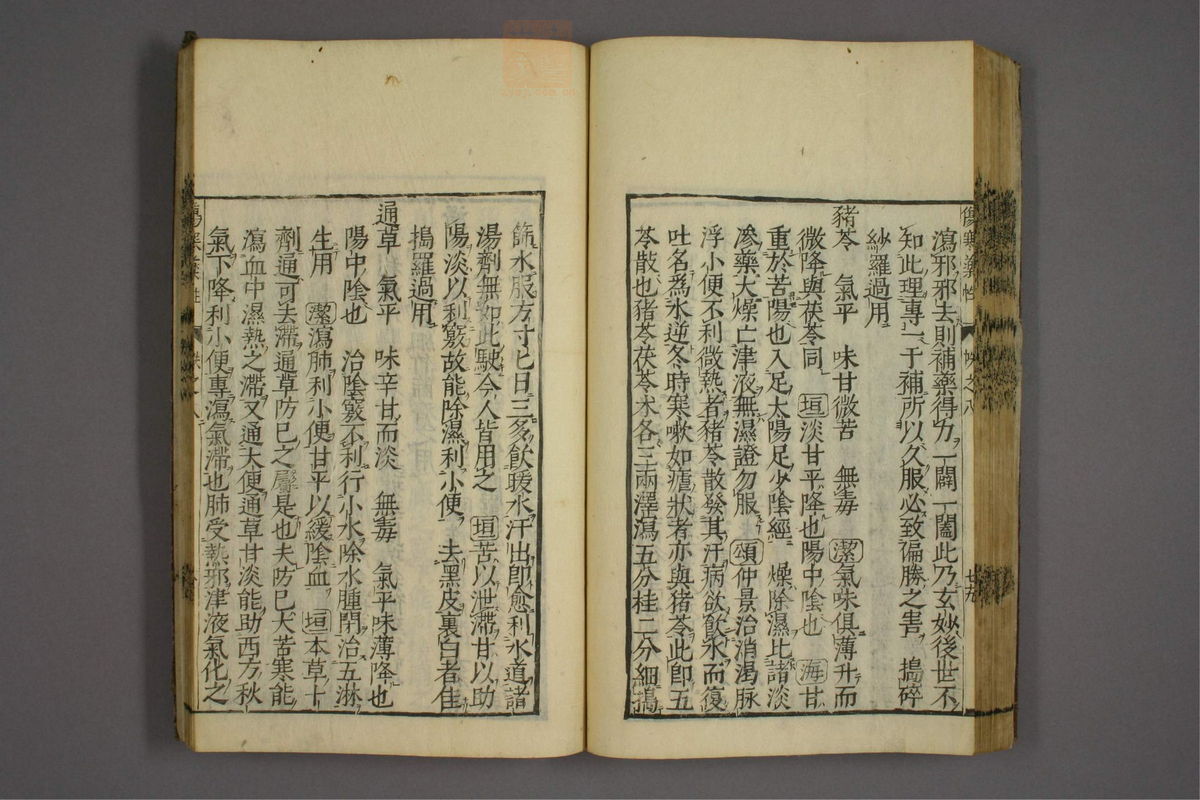 瀉邪邪去則補藥得力一闢一闔此乃玄妙後世不
知此理專一于補所以久服必致偏勝之害　搗碎
紗羅過用
豬苓　氣平　味甘微苦　無毒　潔氣味俱薄升而
微降與茯苓同　垣淡甘平降也陽中陰也　海甘
重於苦陽也入足太陽足少陰經　燥除濕比諸淡
滲藥大燥亡津液無濕證勿服　頌仲景治消渴脉
浮小便不利微熱者豬苓散發其汗病欲飲水而復
吐名爲水逆冬時寒嗽如瘧狀者亦與豬苓此即五
苓散也豬苓茯苓朮各三兩澤瀉五分桂二分細搗
篩水服方寸匕日三多飲煖水汗出即愈利水道諸
湯劑無如此駛今人皆用之　垣苦以泄滯甘以助
陽淡以利竅故能除濕利小便　去黑皮裏白者佳
搗羅過用
通草　氣平　味辛甘而淡　無毒　氣平味薄降也
陽中陰也　治陰竅不利行小水除水腫閉治五淋
生用　潔瀉肺利小便甘平以緩陰血　垣本草十
劑通可去滯通草防已之屬是也夫防已大苦寒能
瀉血中濕熱之滯又通大便通草甘淡能助西方秋
氣下降利小便專瀉氣滯也肺受熱邪津液氣化之